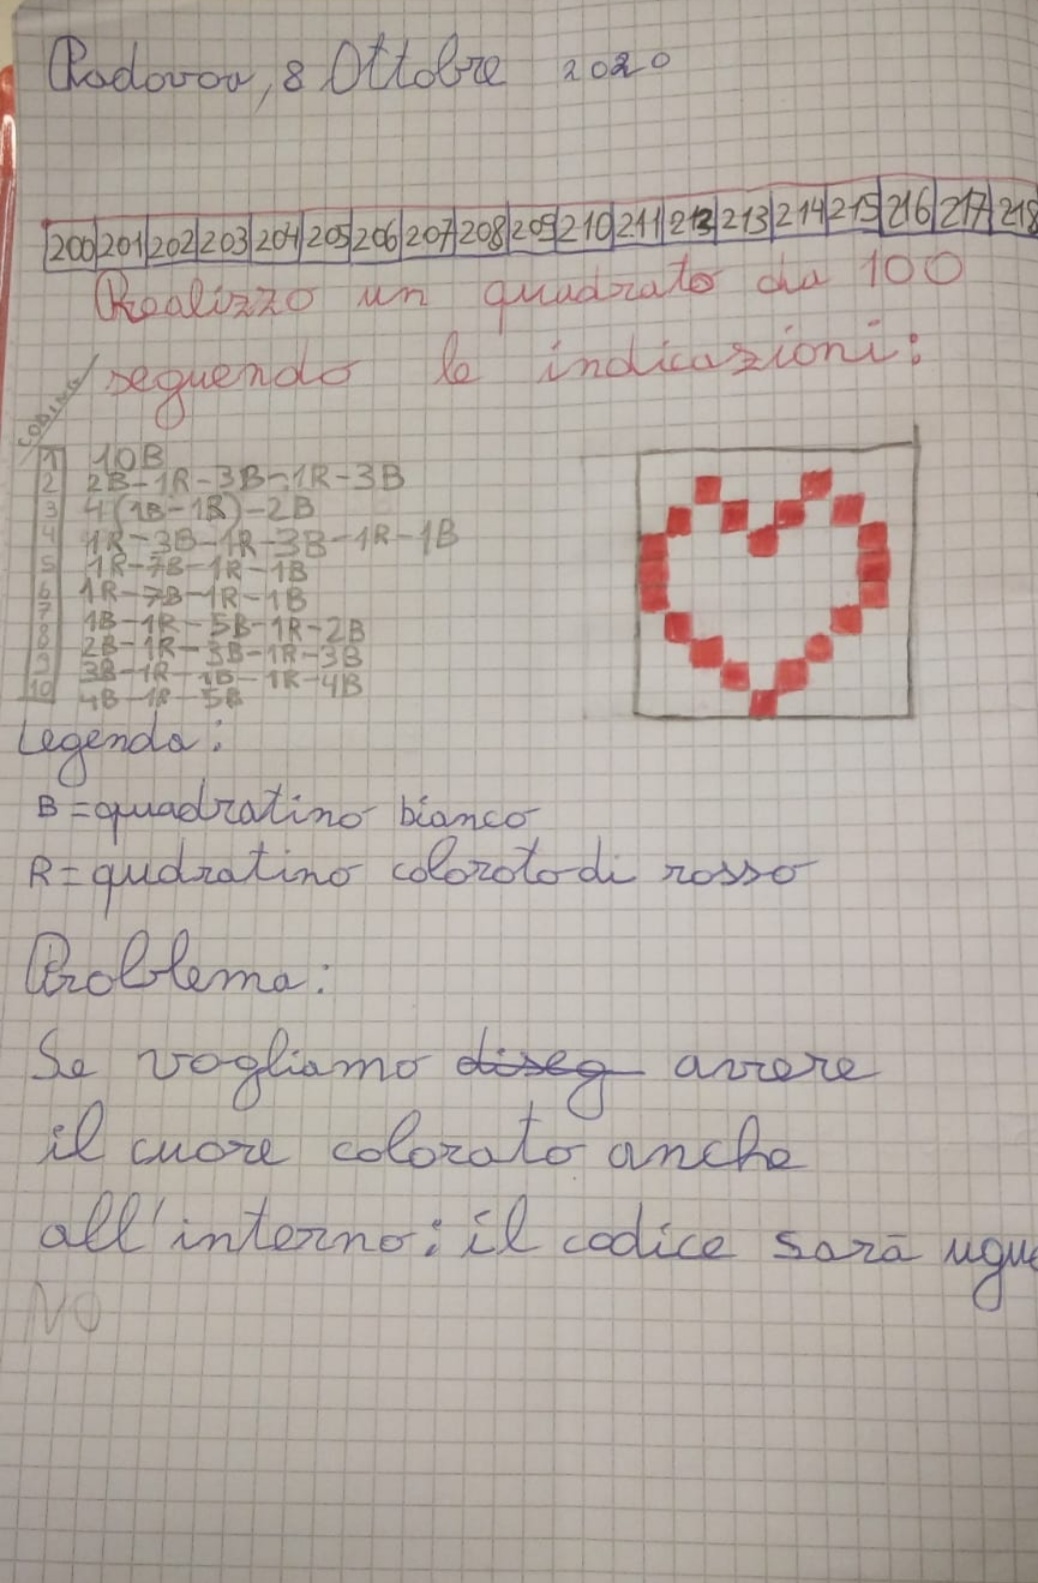 Padova, 8 Ottobre 2020
200 201 202 203 204 205 206 207 208 209 210 211 212 213 214 215 216 217 218
Realizzo un quadrato da 100
seguendo le indicazioni:
CODING
1 10B
2 2B-1R-3B-1R-3B
3 4(1B-1R)-2B
4 1R-3B-1R-3B-1R-1B
5 1R-7B-1R-1B
6 1R-7B-1R-1B
7 1B-1R-5B-1R-2B
8 2B-1R-3B-1R-3B
9 3B-1R-1B-1R-4B
10 4B-1R-5B
Legenda:
B=quadratino bianco
R=qudratino coloroto di rosso
Problema:
Se vogliamo diseg avere
il cuore colorato anche
all'interno: il codice sarà ugu
NO